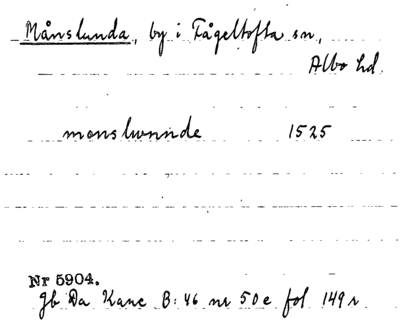 Månslunda, by i Fågeltofta sn,
Albo hd.
monslwnnde 1525
Nr 5904.
gb Da Kanc B: 46 nr 50 e fol 149 r